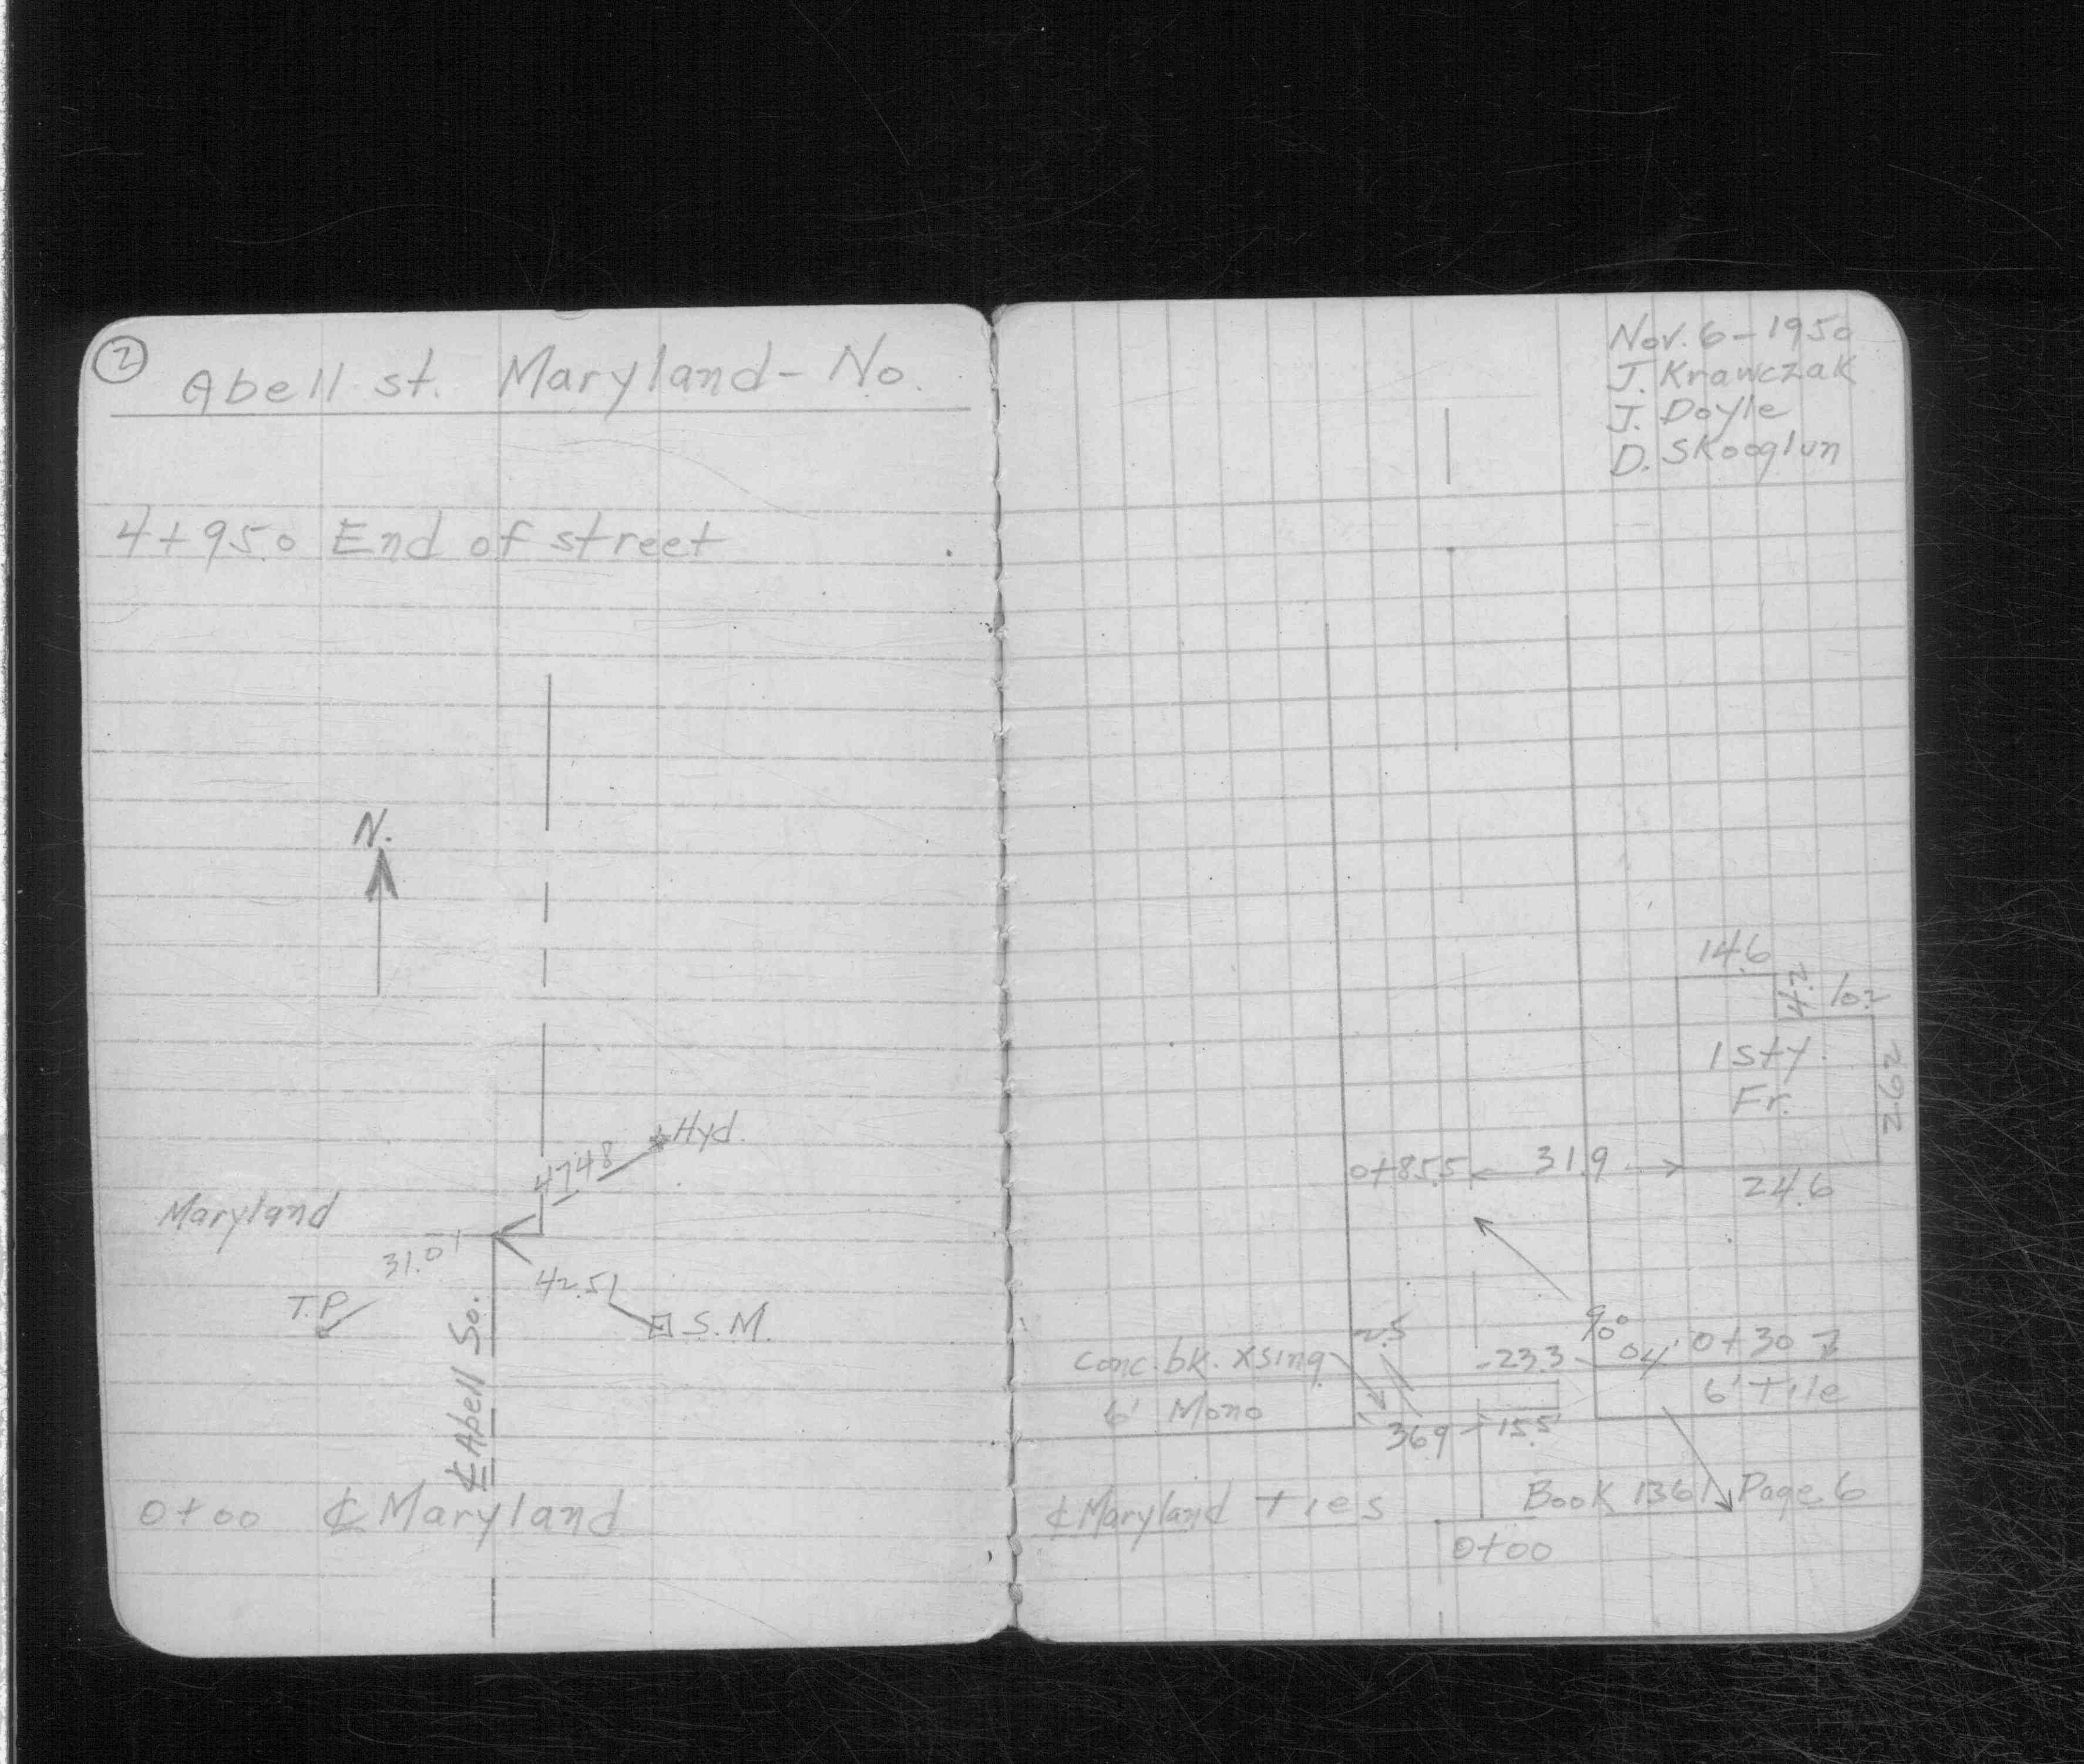 2
Abell st. Maryland - No.
4+95.0 End of street
N.
Hyd.
47.48
Maryland
31.01
42.51
T.P.
S.M.
℄ Abell So.
0+00 ℄ Maryland
Nov. 6-1950
J. Krawczak
J. Doyle
D. Skooglun
14.6
4.2
10.2
1 sty.
Fr.
26.2
0+85.5
31.9
24.6
90° 04'
2.5
conc. bk. xsing
23.3
0+30.7
6' Mono
6' Tile
36.9
15.5
℄ Maryland Ties
Book 1361 Page 6
0+00